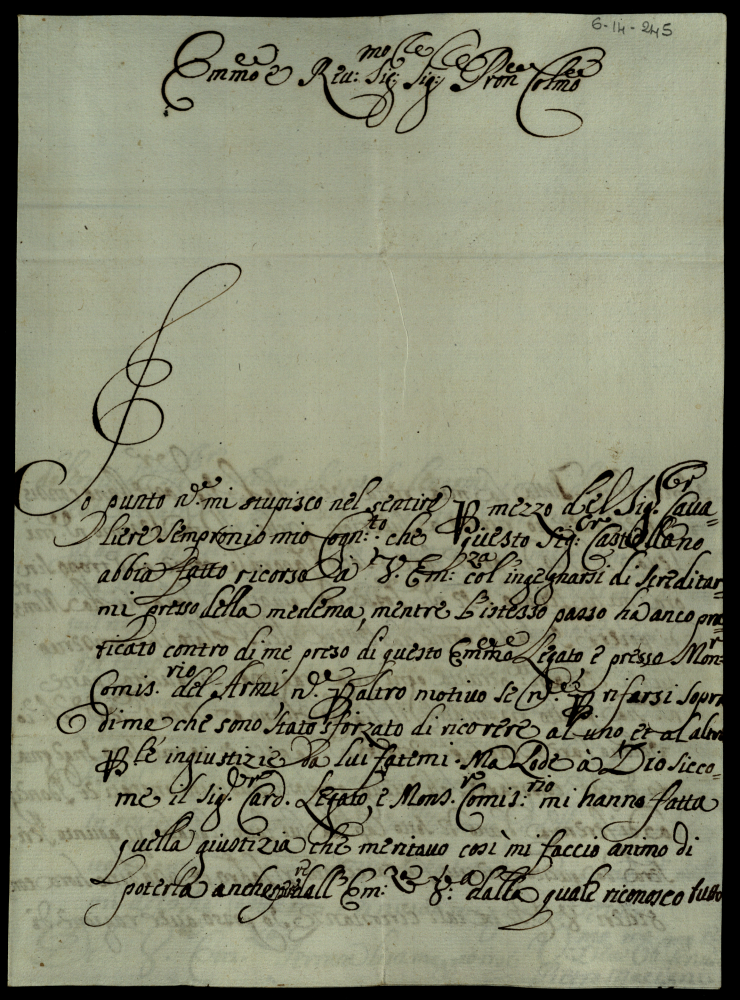 6-14-245
Emmo e Reu: mo Sig: re Sig: re Pron e Colmo
Io punto n.e mi stupisco nel sentire P mezzo del Sig.r Caua=
liere Sempronio mio Cogn:to che questo Sig:r Castellano
abbia fatto ricorso à V. Em:za col ingegnarsi di screditar=
mi presso della medema, mentre l'istesso passo hà anco pra=
ticato contro di me preso di questo Emmo Legato e presso Mon:r
Comis.rio del Armi n.e P altro motiuo se n.e P rifarsi sopra
di me che sono stato sforzato di ricorere al uno et al altro
P le ingiustizie da lui fatemi. Ma Lode à Dio sicco=
me il Sig.r Card. Legato, e Mons.r Comis:rio mi hanno fatta
quella giustizia che meritauo così mi faccio animo di
poterla anche dall' Em:za V:a dalla quale riconosco tutto